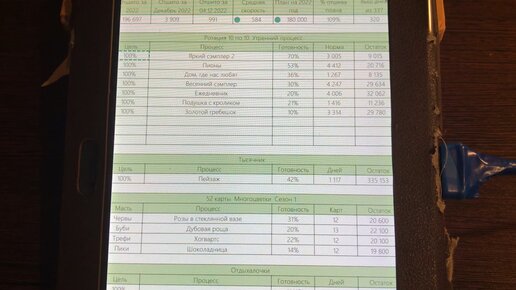 Отшито за Отшито за Отшито за Средняя План на 2022 % отшива Мой дней
2022 Декабрь 2022 04.12.2022 скорость год плана из 331
196 697 3 909 991 584 180 000 109% 320
Ротация 10 по 10. Утренний процесс
Цель Процесс Готовность Норма Остаток
100% Яркий сэмплер 2 70% 3 005 9 015
100% Пионы 53% 4 412 20 716
100% Дом, где нас любят 36% 1 267 8 135
100% Весенний сэмплер 30% 4 247 29 634
100% Ежедневник 20% 4 006 32 062
100% Подушка с кроликом 21% 1 416 11 236
100% Золотой гребешок 10% 3 314 29 780
Тысячник
Цель Процесс Готовность Дней Остаток
100% Пейзаж 42% 1 117 335 133
52 карты. Многоцветки. Сезон 1
Масть Процесс Готовность Карт Остаток
Червы Розы в стеклянной вазе 31% 12 20 600
Буби Дубовая роща 20% 13 22 100
Трефи Хогвартс 22% 12 20 100
Пики Шоколадница 14% 12 19 800
Отдыхалочки
Цель Процесс Готовность Остаток
100%